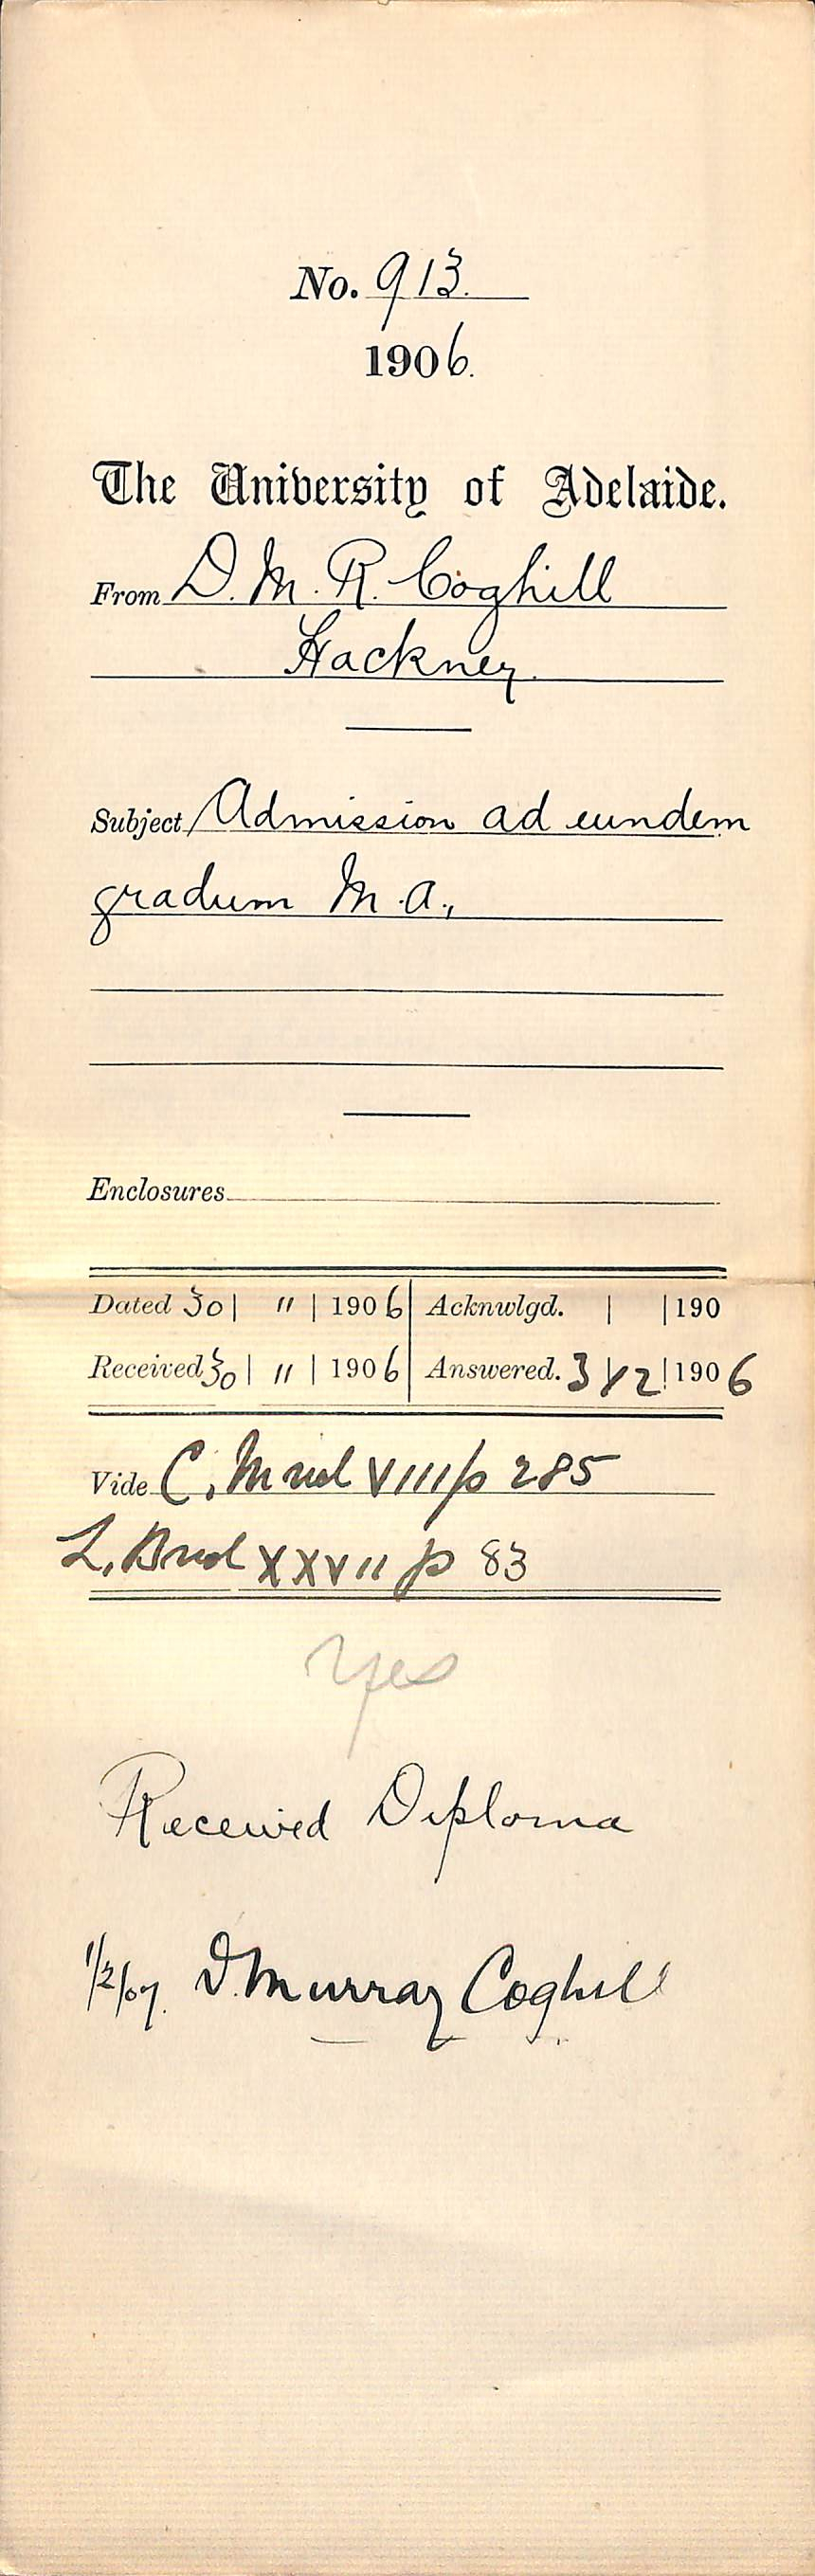 No. 913.
1906.
The University of Adelaide.
From D. M. R. Coghill
Hackney.
Subject Admission ad eundem
gradum M.A.,
Enclosures
Dated 30 | 11 | 1906 Acknwlgd. | | 190
Received 30 | 11 | 1906 Answered. 3 | 12 | 1906
Vide C. M vol VIII p 285
L. B vol XXVII p 83
Yes
Received Diploma
1/2/07. D. Murray Coghill